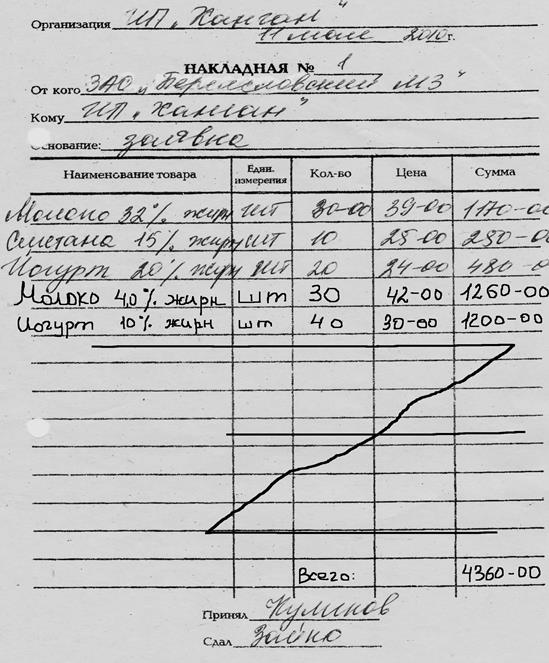 Организация ИП „Ханган"
11 мая 2010г.
НАКЛАДНАЯ № 1
От кого ЗАО „Переясловский МЗ"
Кому ИП „Ханган"
Основание: заявка
Наименование товара Един. измерения Кол-во Цена Сумма
Молоко 3,2% жирн шт 30-00 39-00 1170-00
Сметана 15% жирн шт 10 25-00 250-00
Йогурт 20% жирн шт 20 24-00 480-0
Молоко 4,0% жирн шт 30 42-00 1260-00
Йогурт 10% жирн шт 40 30-00 1200-00
Всего: 4360-00
Принял Куликов
Сдал Зайко